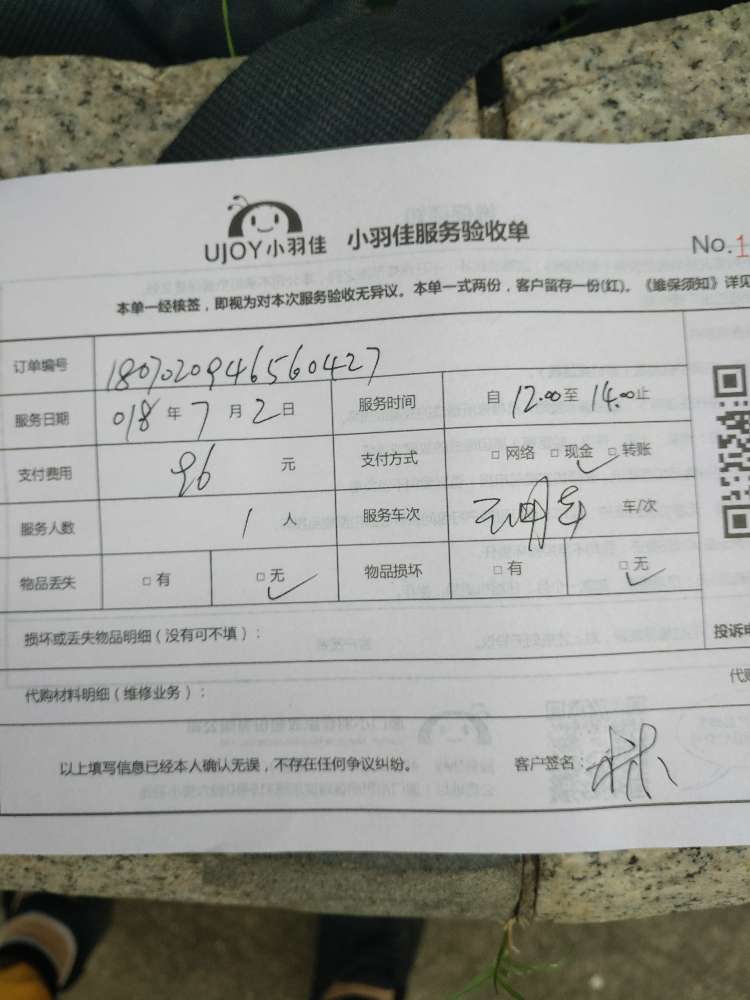 UJOY小羽佳 小羽佳服务验收单
No.1
本单一经核签，即视为对本次服务验收无异议。本单一式两份，客户留存一份(红)。《维保须知》详见
订单编号 1807020946560427
服务日期 018年7月2日 服务时间 自12:00至14:00止
支付费用 96元 支付方式 □网络 □现金 □转账
服务人数 1人 服务车次 车/次
物品丢失 □有 □无 物品损坏 □有 □无
损坏或丢失物品明细（没有可不填）：
投诉电
代购材料明细（维修业务）：
代购
以上填写信息已经本人确认无误，不存在任何争议纠纷。 客户签名：